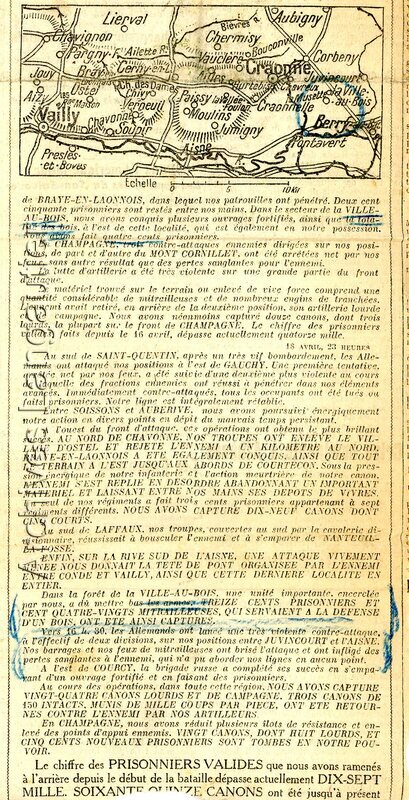 Lierval
Aubigny
Bièvres
Chavignon
Chermisy
Bouconville
Pargny
Ailette R.
Vauclerc
Corbeny
Jouy
Bray
Cerny-en-L.
Craonne
Juvincourt
Ostel
Ch. des Dames
Hurtebise
Chevreux
la Ville-
Aizy
Mon
Vassy
Verneuil
Paissy
la Vallée
Foulon
Craonnelle
la Musette
au-Bois
Vailly
Chavonne
Moulins
Soupir
Jumigny
Berry
Pontavert
Aisne
Presles-
et-Boves
Echelle
0 5 10 Kil
de BRAYE-EN-LAONNOIS, dans lequel nos patrouilles ont pénétré. Deux cent
cinquante prisonniers sont restés entre nos mains. Dans le secteur de la VILLE-
AU-BOIS, nous avons conquis plusieurs ouvrages fortifiés, ainsi que la tota-
lité des bois, à l'est de cette localité, qui est également en notre possession.
Nous avons fait quatre cents prisonniers.
En CHAMPAGNE, trois contre-attaques ennemies dirigées sur nos posi-
tions, de part et d'autre du MONT CORNILLET, ont été arrêtées net par nos
feux sans autre résultat que des pertes sanglantes pour l'ennemi.
La lutte d'artillerie a été très violente sur une grande partie du front
d'attaque.
Le matériel trouvé sur le terrain ou enlevé de vive force comprend une
quantité considérable de mitrailleuses et de nombreux engins de tranchées.
L'ennemi avait retiré, en arrière de la deuxième position, son artillerie lourde
et de campagne. Nous avons néanmoins capturé douze canons, dont trois
lourds, la plupart sur le front de CHAMPAGNE. Le chiffre des prisonniers
valides faits depuis le 16 avril, dépasse actuellement quatorze mille.
18 AVRIL, 23 HEURES
Au sud de SAINT-QUENTIN, après un très vif bombardement, les Alle-
mands ont attaqué nos positions à l'est de GAUCHY. Une première tentative,
arrêtée net par nos feux, a été suivie d'une deuxième plus violente au cours
de laquelle des fractions ennemies ont réussi à pénétrer dans nos éléments
avancés. Immédiatement contre-attaqués, tous les occupants ont été tués ou
faits prisonniers. Notre ligne est intégralement rétablie.
Entre SOISSONS et AUBERIVE, nous avons poursuivi énergiquement
notre action en divers points en dépit du mauvais temps persistant.
A l'ouest du front d'attaque, ces opérations ont obtenu le plus brillant
succès. AU NORD DE CHAVONNE, NOS TROUPES ONT ENLEVÉ LE VIL-
LAGE D'OSTEL ET REJETÉ L'ENNEMI A UN KILOMETRE AU NORD.
BRAYE-EN-LAONNOIS A ETE EGALEMENT CONQUIS, AINSI QUE TOUT
LE TERRAIN A L'EST JUSQU'AUX ABORDS DE COURTECON. Sous la pres-
sion énergique de notre infanterie et l'action meurtrière de notre canon,
L'ENNEMI S'EST REPLIE EN DESORDRE ABANDONNANT UN IMPORTANT
MATERIEL ET LAISSANT ENTRE NOS MAINS SES DEPOTS DE VIVRES.
Un seul de nos régiments a fait trois cents prisonniers appartenant à sept
régiments différents. NOUS AVONS CAPTURE DIX-NEUF CANONS DONT
CINQ COURTS.
Au sud de LAFFAUX, nos troupes, couvertes au sud par la cavalerie di-
visionnaire, réussissaient à bousculer l'ennemi et à s'emparer de NANTEUIL-
LA-FOSSE.
ENFIN, SUR LA RIVE SUD DE L'AISNE, UNE ATTAQUE VIVEMENT
MENEE NOUS DONNAIT LA TETE DE PONT ORGANISEE PAR L'ENNEMI
ENTRE CONDE ET VAILLY, AINSI QUE CETTE DERNIERE LOCALITE EN
ENTIER.
Dans la forêt de la VILLE-AU-BOIS, une unité importante, encerclée
par nous, a dû mettre bas les armes. TREIZE CENTS PRISONNIERS ET
CENT QUATRE-VINGTS MITRAILLEUSES, QUI SERVAIENT A LA DEFENSE
D'UN BOIS, ONT ETE AINSI CAPTURES.
Vers 16 h. 30, les Allemands ont lancé une très violente contre-attaque
à l'effectif de deux divisions, sur nos positions entre JUVINCOURT et l'AISNE.
Nos barrages et nos feux de mitrailleuses ont brisé l'attaque et ont infligé des
pertes sanglantes à l'ennemi, qui n'a pu aborder nos lignes en aucun point.
A l'est de COURCY, la brigade russe a complété ses succès en s'empa-
rant d'un ouvrage fortifié et en faisant des prisonniers.
Au cours des opérations, dans toute cette région, NOUS AVONS CAPTURE
VINGT-QUATRE CANONS LOURDS ET DE CAMPAGNE, TROIS CANONS DE
150 INTACTS, MUNIS DE MILLE COUPS PAR PIECE, ONT ETE RETOUR-
NES CONTRE L'ENNEMI PAR NOS ARTILLEURS
En CHAMPAGNE, nous avons réduit plusieurs îlots de résistance et en-
levé des points d'appui ennemis. VINGT CANONS, DONT HUIT LOURDS, ET
CINQ CENTS NOUVEAUX PRISONNIERS SONT TOMBES EN NOTRE POU-
VOIR.
Le chiffre des PRISONNIERS VALIDES que nous avons ramenés
à l'arrière depuis le début de la bataille dépasse actuellement DIX-SEPT
MILLE. SOIXANTE QUINZE CANONS ont été jusqu'à présent